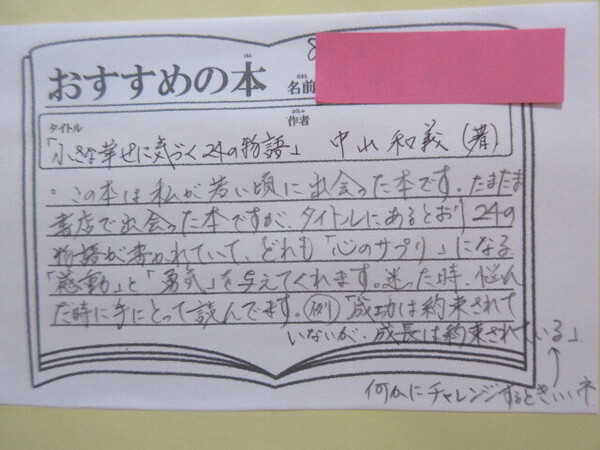 8
おすすめの本 名前
タイトル 作者
「小さな幸せに気づく24の物語」 中山和義(著)
・この本は私が若い頃に出会った本です。たまたま
書店で出会った本ですが、タイトルにあるとおり24の
物語が書かれていて、どれも「心のサプリ」になる
「感動」と「勇気」を与えてくれます。迷った時、悩ん
だ時に手にとって読んでます。(例)「成功は約束されて
いないが、成長は約束されている」
何かにチャレンジするときいいネ